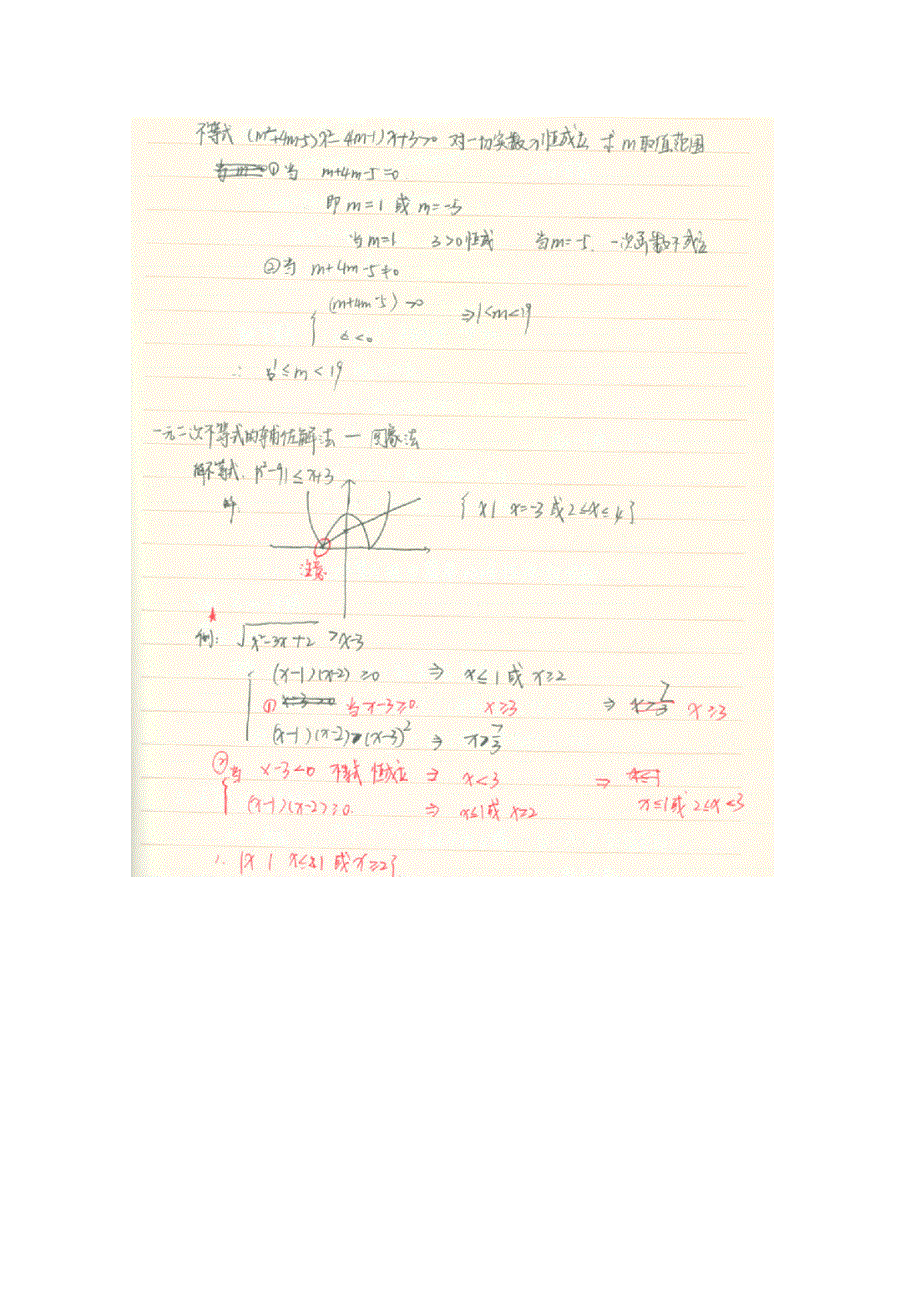 不等式 (m²+4m-5)x²-4(m-1)x+3>0 对一切实数x恒成立 求m取值范围
① 当 m+4m-5=0
即 m=1 或 m=-5
当m=1 3>0恒成 当m=-5. 一次函数不成立
②当 m+4m-5≠0
{ (m+4m-5)>0 ⇒1<m<19
△<0
∴ 1≤m<19
一元二次不等式的辅佐解法 — 图象法
解不等式. |x²-9|≤x+3
解: {x| x=-3或2≤x≤4}
注意
★
例: √x²-3x+2 >x-3
(x-1)(x-2)≥0 ⇒ x≤1或x≥2
① 当x-3≥0. x≥3 ⇒ x≥3
(x-1)(x-2)>(x-3)² ⇒ x>7/3
②当 x-3<0 不等式恒成立 ⇒ x<3 ⇒ x≤1或2≤x<3
(x-1)(x-2)≥0. ⇒ x≤1或x≥2
∴ {x| x≤1或x≥2}